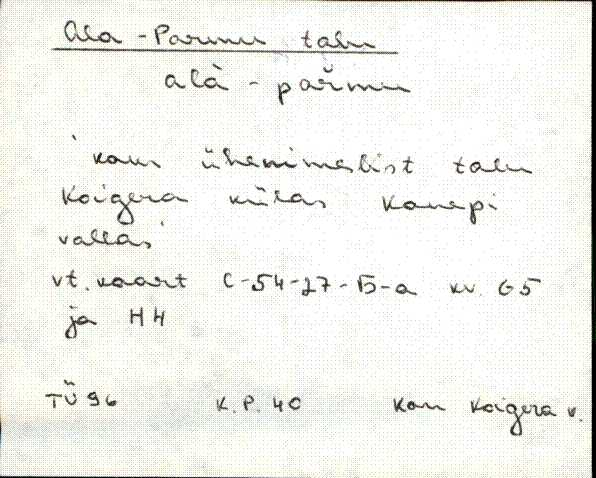 Ala-Parmu talu
alà - pařmu
'kaks ühenimelist talu
Koigera külas Kanepi
vallas'
vt. kaart C-54-27-Б-a kv. G5
ja H4
TÜ 96 K.P. 40 Kan Koigera k.